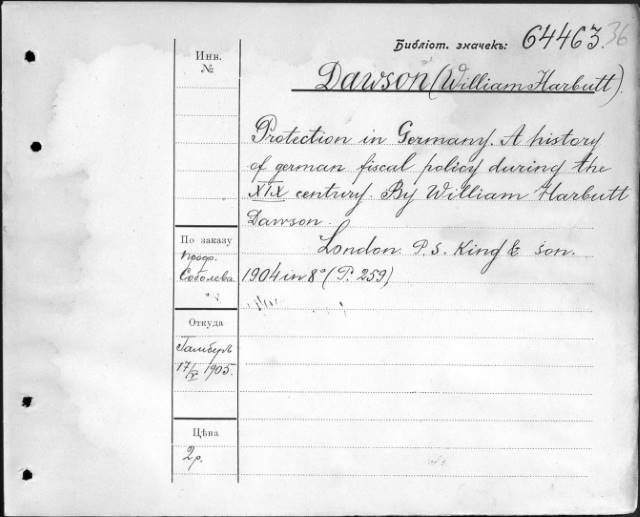 Библіот. значекъ: 64463 36
Инв.
№
Dawson (William Harbutt).
Protection in Germany. A history
of german fiscal policy during the
XIX century. By William Harbutt
Dawson.
London. P. S. King & son.
1904 in 8° (P. 259)
По заказу
проф.
Соболева
Откуда
Гамберъ
17/V 1905.
Цѣна
2 р.